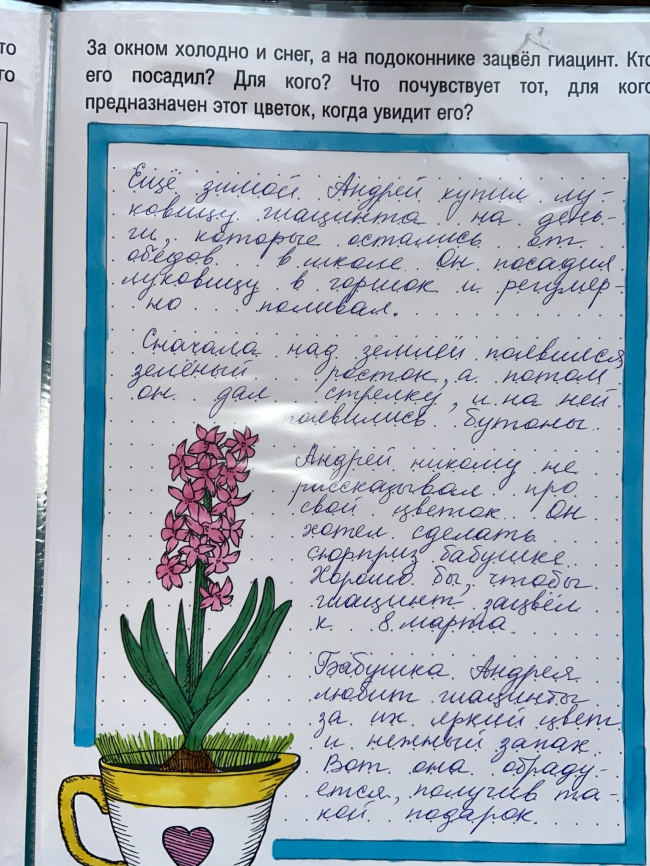 то
го
За окном холодно и снег, а на подоконнике зацвёл гиацинт. Кто
его посадил? Для кого? Что почувствует тот, для кого
предназначен этот цветок, когда увидит его?
Ещё зимой Андрей купил лу-
ковицу гиацинта на день-
ги, которые остались от
обедов в школе. Он посадил
луковицу в горшок и регуляр-
но поливал.
Сначала над землёй появился
зелёный росток, а потом
он дал стрелку, и на ней
появились бутоны.
Андрей никому не
рассказывал про
свой цветок. Он
хотел сделать
сюрприз бабушке.
Хорошо бы, чтобы
гиацинт зацвёл
к 8 марта.
Бабушка Андрея
любит гиацинты
за их яркий цвет
и нежный запах.
Вот она обраду-
ется, получив та-
кой подарок.